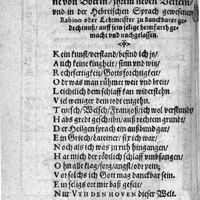 ne von Doerin / ihrem lieben Vettern /
und in der Hebreischen Sprach gewesenen
Rabino oder Lehrmeister zu danckbarer ge
dechtnuß / auff sein selige heimfarth ge
macht und nachgelassen.
Kein kunst / verstand / besind ich je /
Auch keine klugheit / sinn und wiß /
Rechtfertigkeit / Gottsfürchtigkeit /
Ob was man rühmet weit und breit /
Leichlich dem schlaff kan widerstehn /
Viel weniger dem todt entgehn.
Teutsch / Welsch / Frantzösisch wol verstund /
Habs gredt geschriben / auß rechtem grundt /
Der Heiligen sprach ein außbundt gar /
Ein Griech / Lateiner / sie ich war /
Noch als ich was zu ruh hingangen /
Hat mich der tödtlich schlaff umbfangen /
Ohn all klag / sorg / angst / ohn pein /
Vor solches ich Gott mag danckbar sein.
Ein seligs ort mir baß gefelt /
Nur VTH DEN HOVEN dieser Welt.